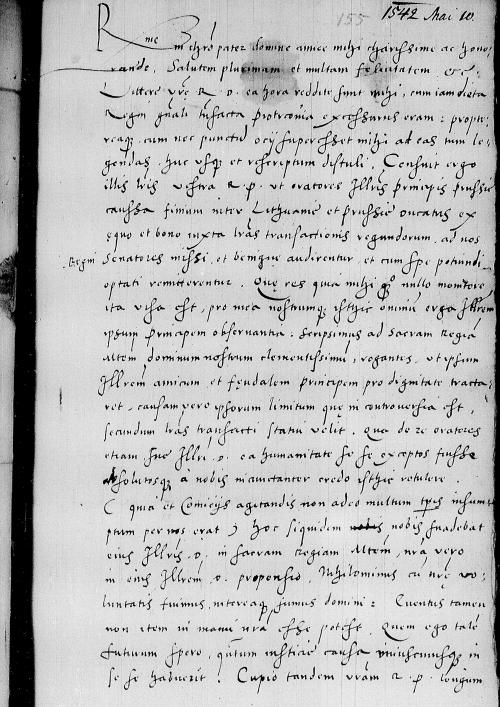 155 1542 Mai 10.
Rme in chro pater domine amice mihi charissime ac hono-
rande. Salutem plurimam et multam felicitatem etc.
Littere vre R. p. ea hora reddite sunt mihi, cum iam dieta
Regni gnali transacta Piotrcovia excessurus eram: propte-
reaq cum nec punctum ocij superesset mihi ad eas tum le-
gendas, huc usq et rescriptum distuli. Censuit ergo
illis lris vestra R. p. ut oratores Illris principis prussie
caussa finium inter Lithuanie et prussie ducatus ex
equo et bono iuxta lras transactionis regundorum, ad nos
Regni Senatores missi, et benigne audirentur, et cum spe potiundi
optati remitterentur. Que res quia mihi nullo momento
ita visa est, pro mea nostrumq isthic omnium erga Illrem
ipsum principem observantia: scripsimus ad Sacram Regia
Altem dominum nostrum clementissimum, rogantes, ut ipsum
Illrem amicum et feudalem principem pro dignitate tracta-
ret, causam vero ipsorum limitum que in controversia est,
secundum lras transacti statui velit. Qua de re oratores
etiam sue Illris. d. ea humanitate se se exceptos fuisse
absolutosq a nobis incunctanter credo isthic retulere.
( quia et Comicijs agitandis non adeo multum tpris insum-
ptum per nos erat ) hoc siquidem nobis suadebat
eius Illris. d. in sacram Regiam Altem, nra vero
in eius Illrem. d. propensio. Nihilominus cum nre vo-
luntatis fuimus, utereaq sumus domini: Eventus tamen
non item in manu nra esse potest. Quem ego tale
futurum spero, quantum iustitie causa uniuscuiusq in
se se habuerit. Cupio tandem vram R. p. longum